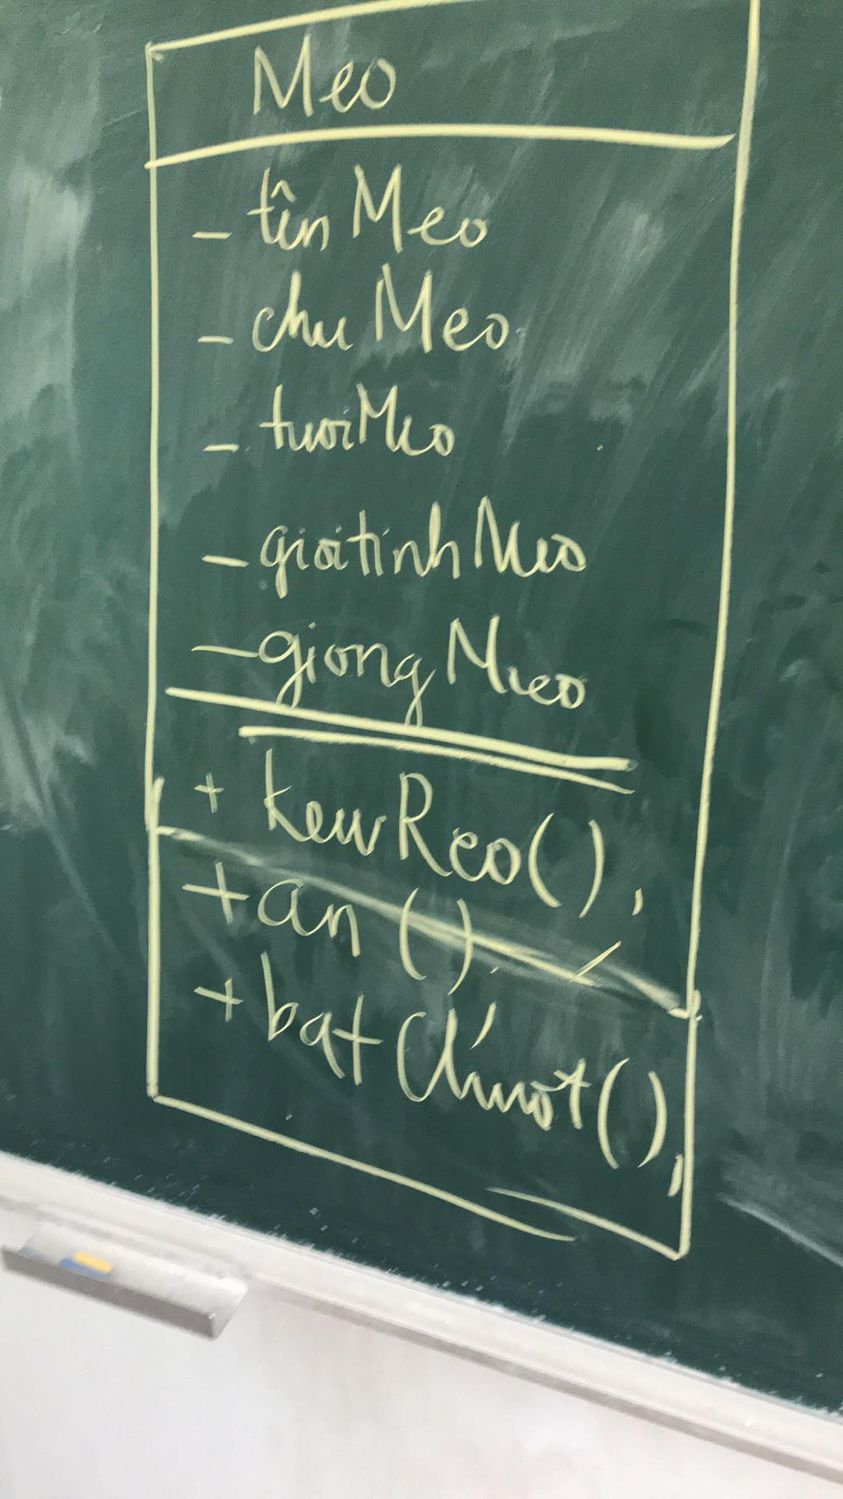 Meo
- tên Meo
- chu Meo
- tuoiMeo
- gioitinh Meo
- giong Meo
+ keuReo(),
+ an ();
+ bat Chuot(),